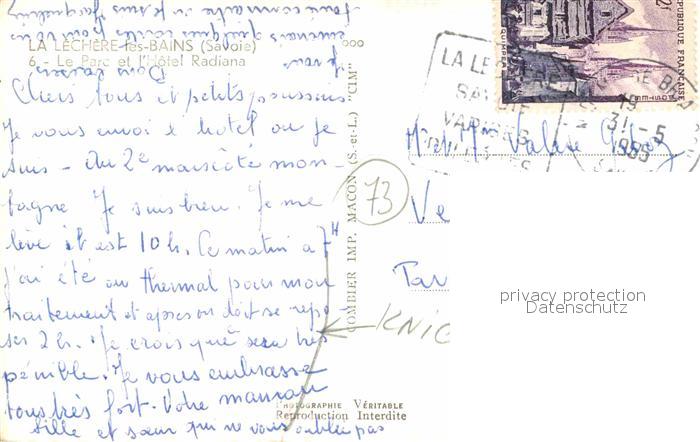 LA LÉCHÈRE-les-BAINS (Savoie)
6. - Le Parc et l'Hôtel Radiana
Chers tous et petits poussins
Je vous envoi l hotel ou je
suis - Au 2e
mon-
tagne Je suis bien. Je me
lève il est 10 h. Ce matin a 7H
j'ai été au thermal pour mon
traitement et apres on doit se repo
ser 2 h. Je crois que sera très
pénible. Je vous embrasse
tous très fort. Votre maman
fille et sœur qui ne vous oublie pas
COMBIER IMP. MACON (S.-et-L.) "CIM"
PHOTOGRAPHIE VÉRITABLE
Reproduction Interdite
RÉPUBLIQUE FRANÇAISE
LA LÉCHÈRE
SAVOIE
VARICES
19
31-5
1955
73
Mr et Mme Valise
Ve
Tar
KNIC
privacy protection
Datenschutz